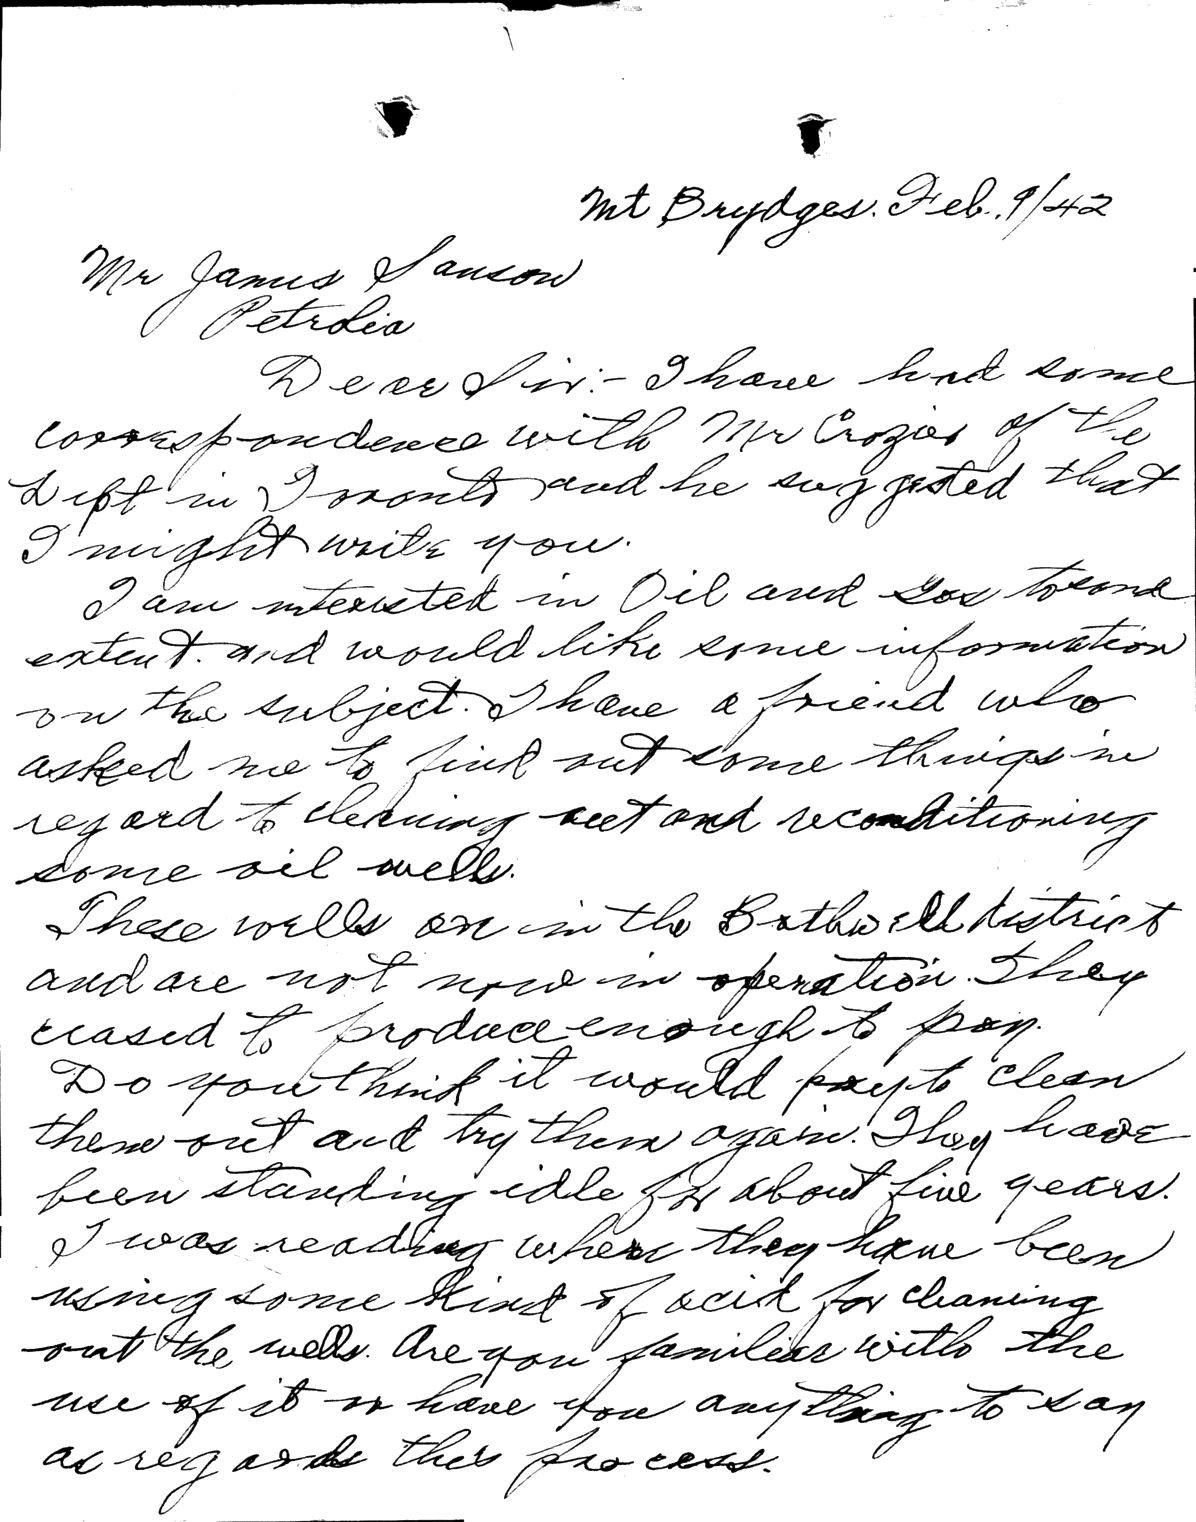 Mt Brydges. Feb. 9/42
Mr James Sanson
Petrolia
Dear Sir:- I have had some
correspondence with Mr Crozier of the
Dept in Toronto and he suggested that
I might write you.
I am interested in Oil and Gas to some
extent. and would like some information
on the subject. I have a friend who
asked me to find out some things in
regard to cleaning out and reconditioning
some oil wells.
These wells are in the Bothwell district
and are not now in operation. They
ceased to produce enough to pay.
Do you think it would pay to clean
them out and try them again. They have
been standing idle for about five years.
I was reading where they have been
using some kind of acid for cleaning
out the wells. Are you familiar with the
use of it or have you anything to say
as regards this process.